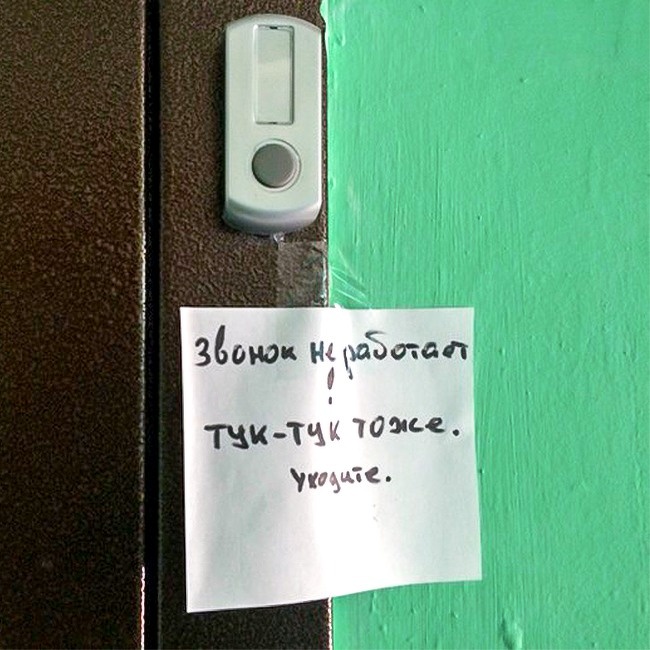 Звонок не работает
!
тук-тук тоже.
Уходите.